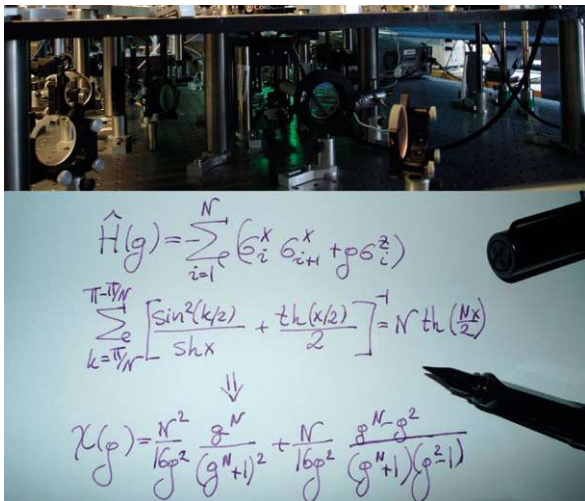 Ĥ(g) = -∑_{i=1}^{N} (σ_i^x σ_{i+1}^x + gσ_i^z)
∑_{k=π/N}^{π-π/N} [sin²(k/2)/sh x + th(x/2)/2]^{-1} = N th(Nx/2)
⇓
χ(g) = N²/16g² g^N/(g^N+1)² + N/16g² (g^N-g²)/((g^N+1)(g²-1))